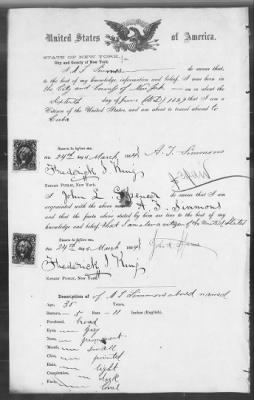 United States of America.
STATE OF NEW YORK,
City and County of New York
A T Simmons do swear that,
to the best of my knowledge, information and belief, I was born in
the City and County of New York on or about the
day of June AD, 1829 that I am a
Citizen of the United States, and am about to travel abroad to
Cuba
Sworn to before me
on 24th March 1864 A. T. Simmons
Frederick I. King
NOTARY PUBLIC, New York.
I John L. do swear that I am
acquainted with the above named A. T. Simmons
and that the facts above stated by him are true to the best of my
knowledge and belief that I am a citizen of the United States
Sworn to before me
on 24th March 1864
Frederick I King
NOTARY PUBLIC, New York.
Description of A T Simmons above named
Age: 35 Years,
Stature: 5 Feet 11 Inches (English),
Forehead: broad
Eyes: Grey
Nose: prominent
Mouth: small
Chin: pointed
Hair: light
Complexion: dark
Face: oval